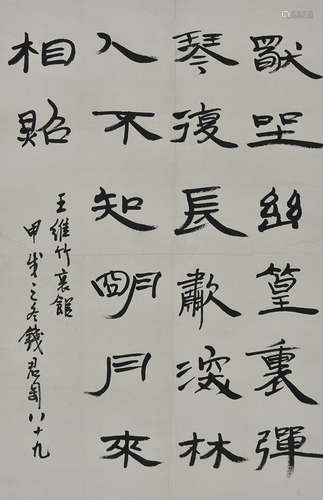 獨坐幽篁裏彈
琴復長歗深林
人不知朙月來
相照
王維竹裏館
甲戌之冬錢君匋八十九